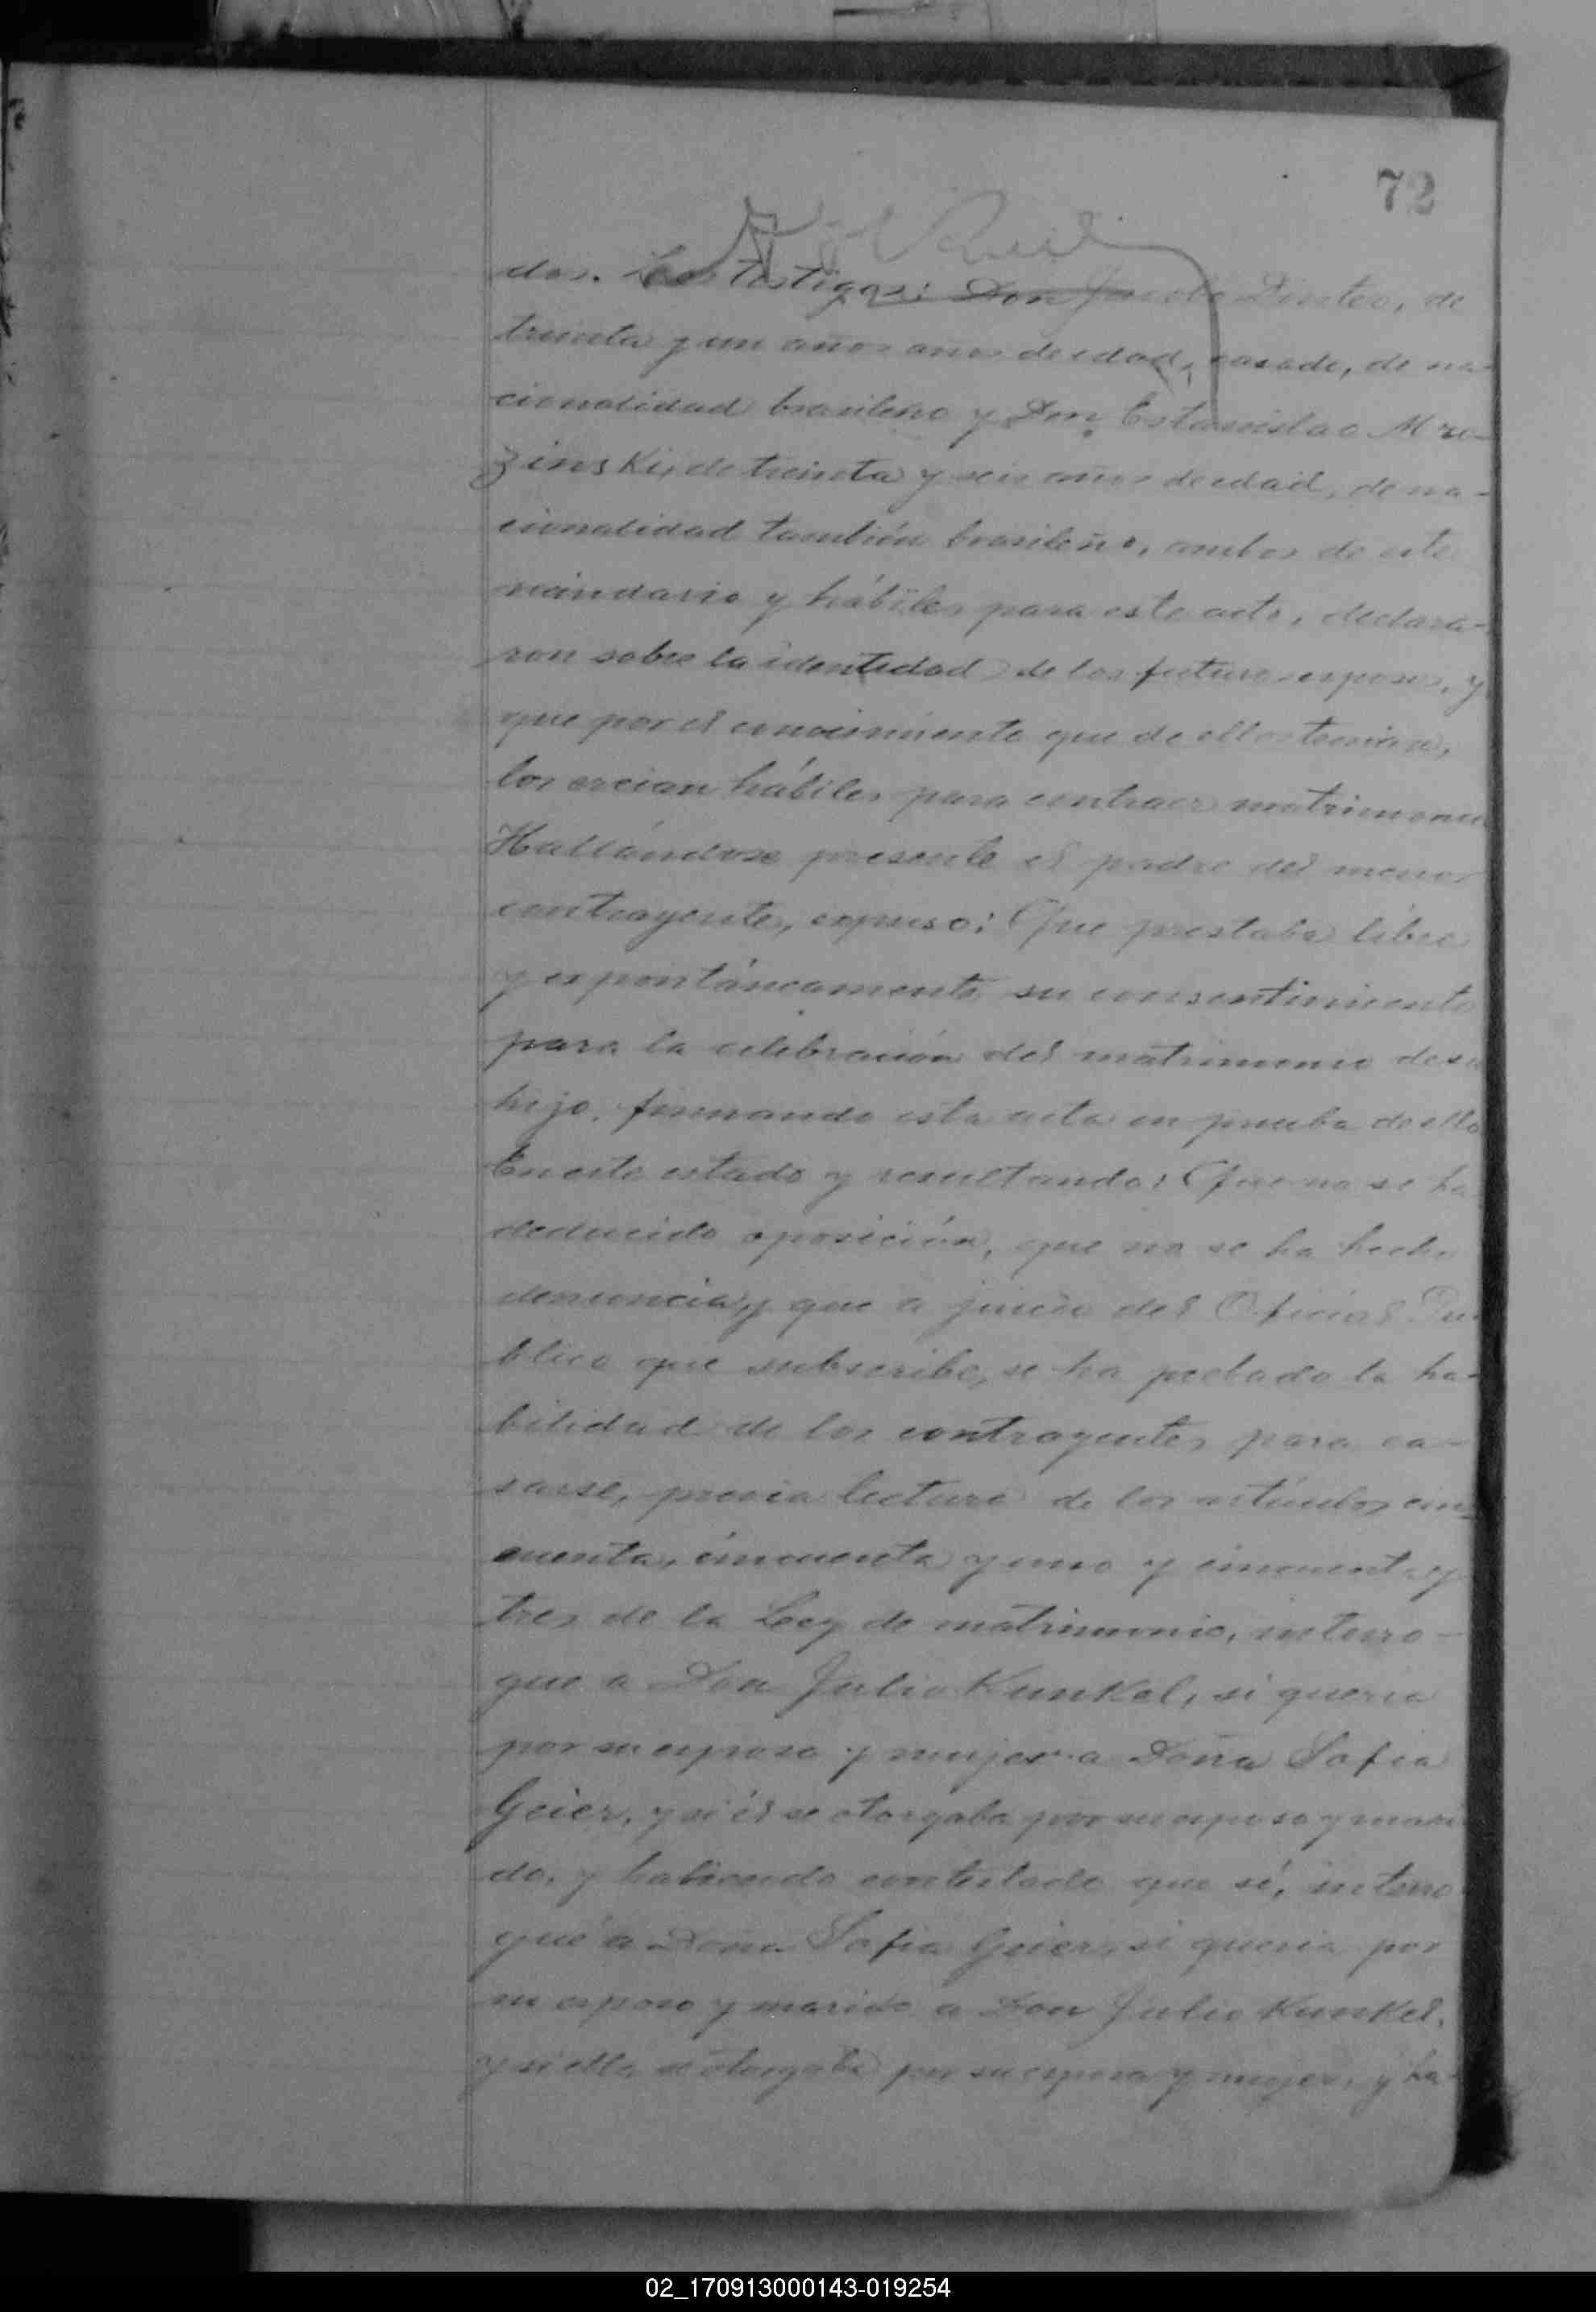 72
dos. Los testigos: Don Jacobo Dinter, de
treinta y un años anos de edad, casado, de na-
cionalidad brasileño y Don Estanislao Mro-
zinski, de treinta y seis años de edad, de na-
cionalidad también brasileño, ambos de este
vecindario y hábiles para este acto, declara-
ron sobre la identidad de los futuros esposos, y
que por el conocimiento que de ellos tenian,
los creian hábiles para contraer matrimonio
Hallándose presente el padre del menor
contrayente, expuso: Que prestaba libre
y espontáneamente su consentimiento
para la celebración del matrimonio de su
hijo, firmando esta acta en prueba de ello
En este estado y resultando: Que no se ha
deducido oposición, que no se ha hecho
denuncia y que a juicio del Oficial Pu-
blico que subscribe, se ha probado la ha-
bilidad de los contrayentes para ca-
sarse, previa lectura de los artículos cin-
cuenta, cincuenta y uno y cincuenta y
tres de la Ley de matrimonio, interro-
gue a Don Julio Kunkel, si queria
por su esposa y mujer a Doña Sofia
Geier, y si él se otorgaba por su esposo y mari
do, y habiendo contestado que sí, interro
gué a Doña Sofia Geier, si queria por
su esposo y marido a Don Julio Kunkel,
y si ella se otorgaba por su esposa y mujer, y ha-
02_170913000143-019254